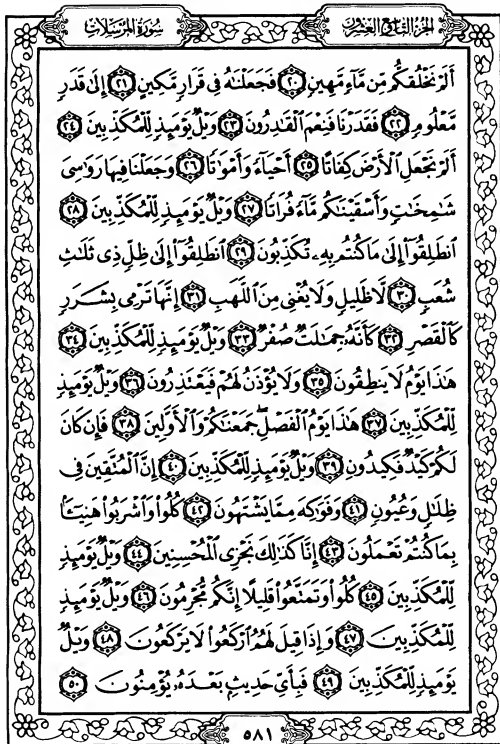 سُورَةُ المُرْسَلَات
الجُزءُ التَّاسِعُ وَالعِشْرُونَ
أَلَمْ نَخْلُقكُّم مِّن مَّآءٍ مَّهِينٍ ٢٠ فَجَعَلْنَٰهُ فِى قَرَارٍ مَّكِينٍ ٢١ إِلَىٰ قَدَرٍ
مَّعْلُومٍ ٢٢ فَقَدَرْنَا فَنِعْمَ ٱلْقَٰدِرُونَ ٢٣ وَيْلٌ يَوْمَئِذٍ لِّلْمُكَذِّبِينَ ٢٤
أَلَمْ نَجْعَلِ ٱلْأَرْضَ كِفَاتًا ٢٥ أَحْيَآءً وَأَمْوَٰتًا ٢٦ وَجَعَلْنَا فِيهَا رَوَٰسِىَ
شَٰمِخَٰتٍ وَأَسْقَيْنَٰكُم مَّآءً فُرَاتًا ٢٧ وَيْلٌ يَوْمَئِذٍ لِّلْمُكَذِّبِينَ ٢٨
ٱنطَلِقُوٓا۟ إِلَىٰ مَا كُنتُم بِهِۦ تُكَذِّبُونَ ٢٩ ٱنطَلِقُوٓا۟ إِلَىٰ ظِلٍّ ذِى ثَلَٰثِ
شُعَبٍ ٣٠ لَّا ظَلِيلٍ وَلَا يُغْنِى مِنَ ٱللَّهَبِ ٣١ إِنَّهَا تَرْمِى بِشَرَرٍ
كَٱلْقَصْرِ ٣٢ كَأَنَّهُۥ جِمَٰلَتٌ صُفْرٌ ٣٣ وَيْلٌ يَوْمَئِذٍ لِّلْمُكَذِّبِينَ ٣٤
هَٰذَا يَوْمُ لَا يَنطِقُونَ ٣٥ وَلَا يُؤْذَنُ لَهُمْ فَيَعْتَذِرُونَ ٣٦ وَيْلٌ يَوْمَئِذٍ
لِّلْمُكَذِّبِينَ ٣٧ هَٰذَا يَوْمُ ٱلْفَصْلِ ۖ جَمَعْنَٰكُمْ وَٱلْأَوَّلِينَ ٣٨ فَإِن كَانَ
لَكُمْ كَيْدٌ فَكِيدُونِ ٣٩ وَيْلٌ يَوْمَئِذٍ لِّلْمُكَذِّبِينَ ٤٠ إِنَّ ٱلْمُتَّقِينَ فِى
ظِلَٰلٍ وَعُيُونٍ ٤١ وَفَوَٰكِهَ مِمَّا يَشْتَهُونَ ٤٢ كُلُوا۟ وَٱشْرَبُوا۟ هَنِيٓـًٔۢا
بِمَا كُنتُمْ تَعْمَلُونَ ٤٣ إِنَّا كَذَٰلِكَ نَجْزِى ٱلْمُحْسِنِينَ ٤٤ وَيْلٌ يَوْمَئِذٍ
لِّلْمُكَذِّبِينَ ٤٥ كُلُوا۟ وَتَمَتَّعُوا۟ قَلِيلًا إِنَّكُم مُّجْرِمُونَ ٤٦ وَيْلٌ يَوْمَئِذٍ
لِّلْمُكَذِّبِينَ ٤٧ وَإِذَا قِيلَ لَهُمُ ٱرْكَعُوا۟ لَا يَرْكَعُونَ ٤٨ وَيْلٌ
يَوْمَئِذٍ لِّلْمُكَذِّبِينَ ٤٩ فَبِأَىِّ حَدِيثٍۭ بَعْدَهُۥ يُؤْمِنُونَ ٥٠
٥٨١